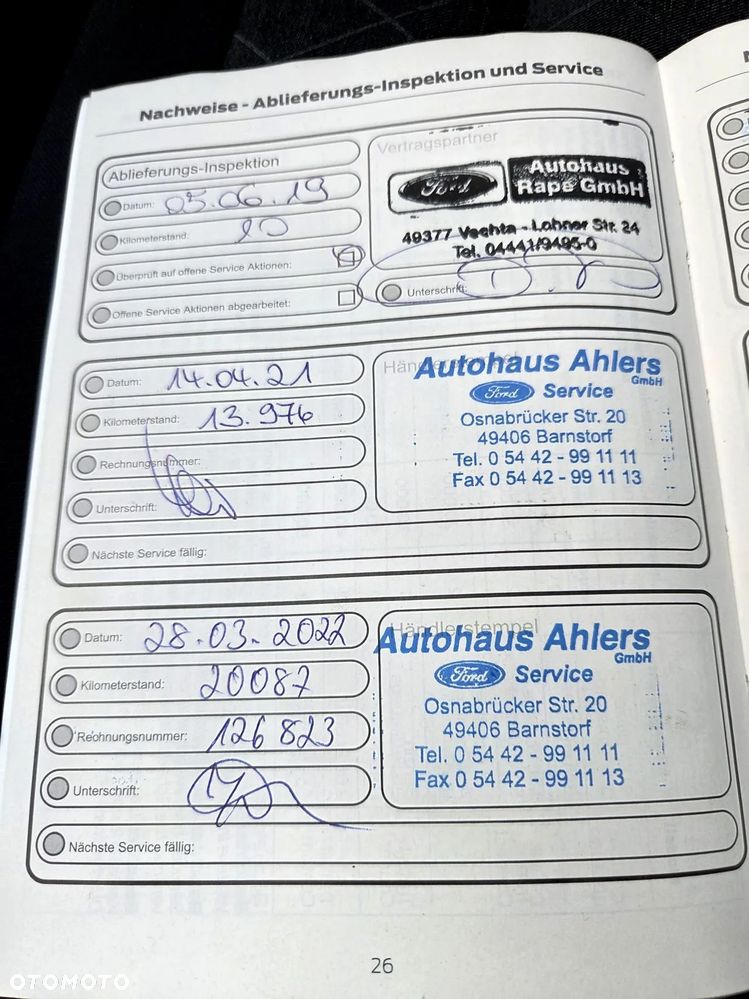 Nachweise - Ablieferungs-Inspektion und Service
Ablieferungs-Inspektion
Datum: 05.06.19
Kilometerstand: 20
Überprüft auf offene Service Aktionen:
Offene Service Aktionen abgearbeitet:
Vertragspartner
Ford
Autohaus
Rape GmbH
49377 Vechta - Lohner Str. 24
Tel. 04441/9495-0
Unterschrift:
Datum: 14.04.21
Kilometerstand: 13.976
Rechnungsnummer:
Unterschrift:
Nächste Service fällig:
Händlerstempel
Autohaus Ahlers
GmbH
Ford Service
Osnabrücker Str. 20
49406 Barnstorf
Tel. 0 54 42 - 99 11 11
Fax 0 54 42 - 99 11 13
Datum: 28.03.2022
Kilometerstand: 20087
Rechnungsnummer: 126823
Unterschrift:
Nächste Service fällig:
Händlerstempel
Autohaus Ahlers
GmbH
Ford Service
Osnabrücker Str. 20
49406 Barnstorf
Tel. 0 54 42 - 99 11 11
Fax 0 54 42 - 99 11 13
26
OTOMOTO